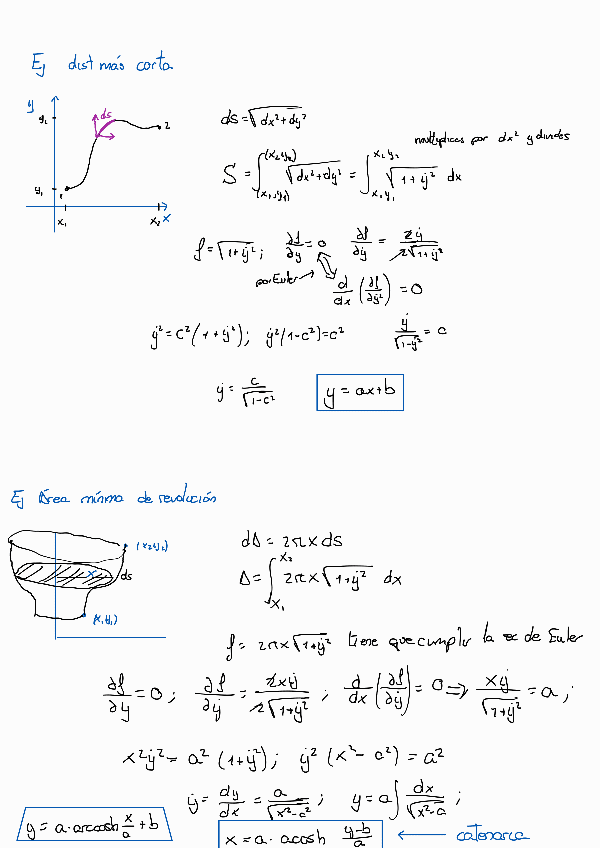 Ej dist más corta
y
y₂
ds
2
y₁
1
x₁
x₂
x
ds = √(dx²+dy²)
multiplicas por dx² y divides
S = ∫_(x₁,y₁)^(x₂,y₂) √(dx²+dy²) = ∫_{x₁y₁}^{x₂y₂} √(1+ẏ²) dx
f = √(1+ẏ²); ∂f/∂y = 0 ∂f/∂ẏ = 2ẏ/(2√(1+ẏ²))
por Euler → d/dx (∂f/∂ẏ) = 0
ẏ² = c²(1+ẏ²); ẏ²(1-c²) = c² ẏ/√(1-ẏ²) = c
ẏ = c/√(1-c²) y = ax+b
Ej Área mínima de revolución
(x₂y₂)
x
ds
(x₁y₁)
dA = 2πx ds
A = ∫_{x₁}^{x₂} 2πx√(1+ẏ²) dx
f = 2πx√(1+ẏ²) tiene que cumplir la ec de Euler
∂f/∂y = 0; ∂f/∂ẏ = 2xẏ/(2√(1+ẏ²)); d/dx (∂f/∂ẏ) = 0 ⇒ xẏ/√(1+ẏ²) = a;
x²ẏ² = a²(1+ẏ²); ẏ²(x²-a²) = a²
ẏ = dy/dx = a/√(x²-a²); y = a∫ dx/√(x²-a);
y = a·arccosh x/a + b
x = a·acosh (y-b)/a ← catenaria